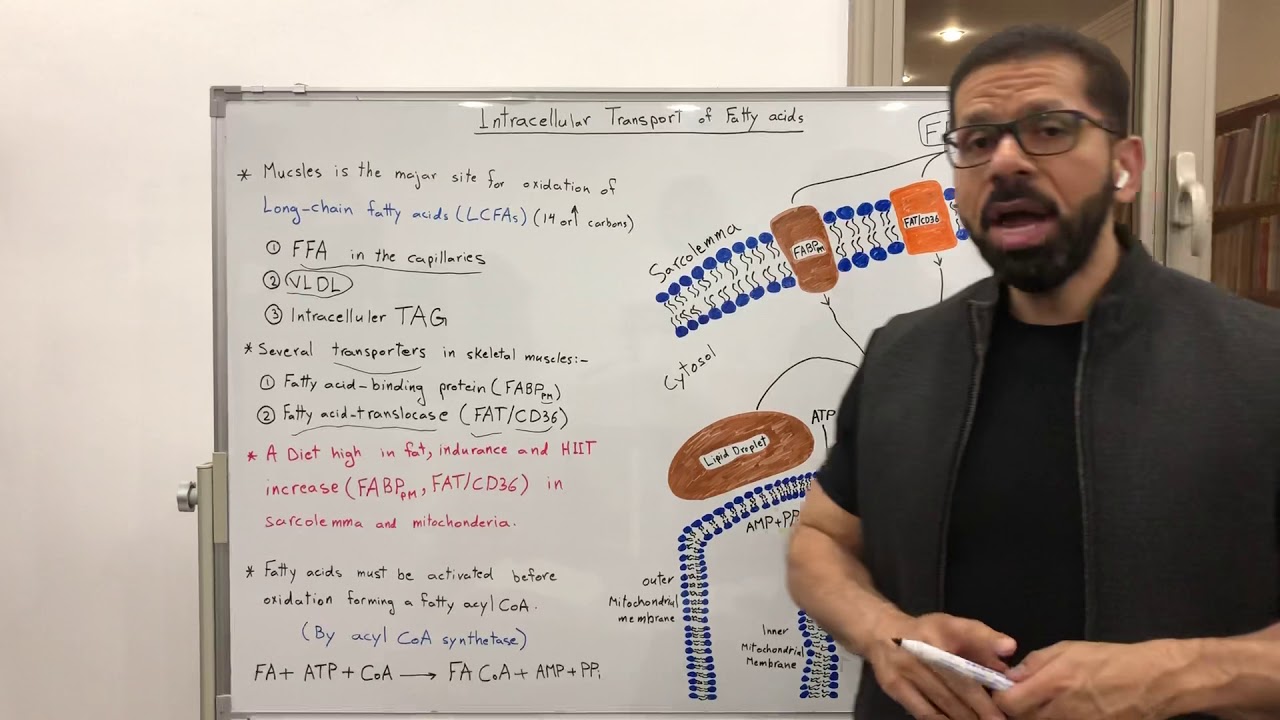 Intracellular Transport of Fatty acids
* Mucsles is the major site for oxidation of
Long-chain fatty acids (LCFAs) (14 or↑ carbons)
① FFA in the capillaries
② VLDL
③ Intracelluler TAG
* Several transporters in skeletal muscles:-
① Fatty acid-binding protein (FABPPM)
② Fatty acid-translocase (FAT/CD36)
* A Diet high in fat, indurance and HIIT
increase (FABPPM, FAT/CD36) in
sarcolemma and mitochonderia.
* Fatty acids must be activated before
oxidation forming a fatty acyl CoA.
(By acyl CoA synthetase)
FA + ATP + CoA → FA CoA + AMP + PPi
Sarcolemma
FABPPM
FAT/CD36
Cytosol
Lipid Droplet
ATP
AMP + PP
outer
Mitochondrial
membrane
Inner
Mitochondrial
Membrane